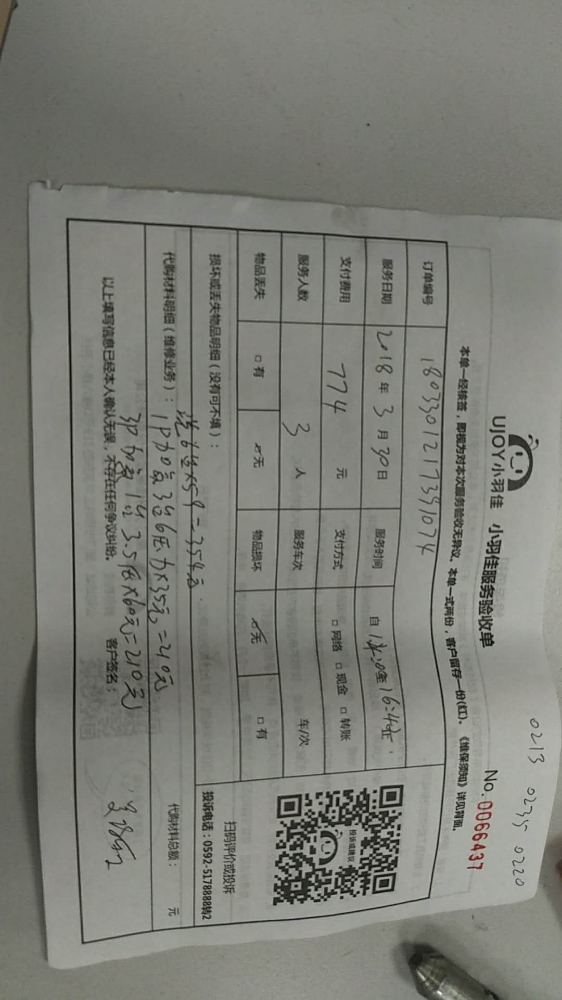 0213 02335 0220
UJOY小羽佳 小羽佳服务验收单 No. 0066437
本单一经核签，即视为对本次服务验收无异议。本单一式两份，客户留存一份(红)。《维保须知》详见背面。
订单编号 1803301217391074
服务日期 2018年3月30日 服务时间 自 至16:40止
支付费用 774元 支付方式 □网络 □现金 □转账
服务人数 3人 服务车次 车/次
物品丢失 □有 ☑无 物品损坏 ☑无 □有
损坏或丢失物品明细（没有可不填）：
洗6台×59=354元
扫码评价或投诉
投诉电话：0592-5178888转2
投诉或建议
代购材料明细（维修业务）：1P加氟3台6压力×35元=210元
代购材料总额： 元
3P加氟1台3.5压×60元=210元
以上填写信息已经本人确认无误，不存在任何争议纠纷。 客户签名：